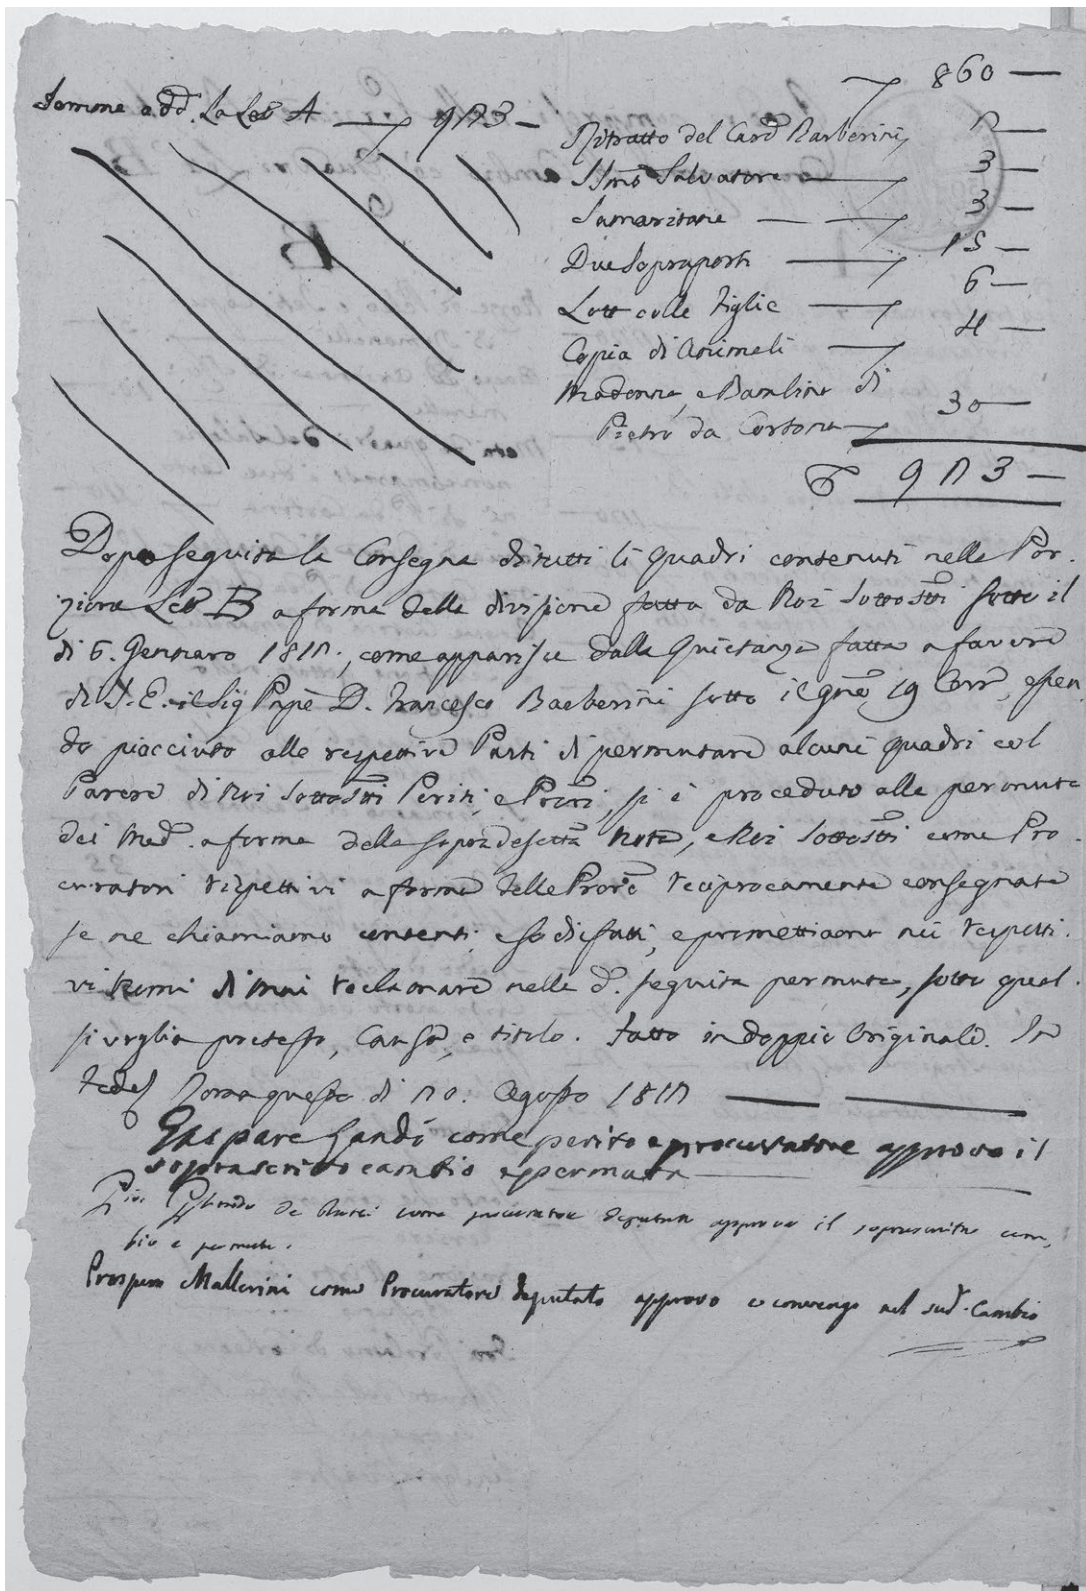 Somma a dd. La Letª A — 923 —
860 —
Ritratto del Cardᵉ Barberini 2 —
SSmo Salvatore — 3 —
Samaritana — — 3 —
Due Sopraporti — 15 —
Lott colle Figlie — 6 —
Copia di Animali — 4 —
Madonna, e Bambino di
Pietro da Cortona — 30 —
923 —
Dopo seguita la Consegna di tutti li quadri contenuti nella Por-
zione Letª B a forma della divisione fatta da Noi Sottostti sotto il
di 6. Gennaro 1812., come apparisce dalla Quietanza fatta a favore
di S. E. il Sig Pnpe D. Francesco Barberini sotto il gno 19 Corr, essen
do piacciuto alle respettive Parti di permutare alcuni quadri col
Parere di Noi Sottostti Periti, e Procri, si è proceduto alla permuta
dei Medᵐⁱ a forma della sopradescttª Nota, e Noi Sottostti come Pro-
curatori rispettivi a forma delle Proré reciprocamente consegnate
se ne chiamiamo contenti, e sodisfatti, e promettiamo nei respetti-
vi Nomi di mai reclamare nella dª. seguita permuta, sotto qual-
sivoglia pretesto, Causa, e titolo. Fatto in doppio Originale. In
fede Roma questo di 20. Agosto 1812 — —
Gaspare Landi come perito e procuratore approvo il
soprascritto cambio e permuta —
Gio: Gherardo de Rossi come procuratore deputato approvo il soprascritto cam-
bio e permuta.
Prospero Mallerini come Procuratore deputato approvo e convengo nel sudº. Cambio